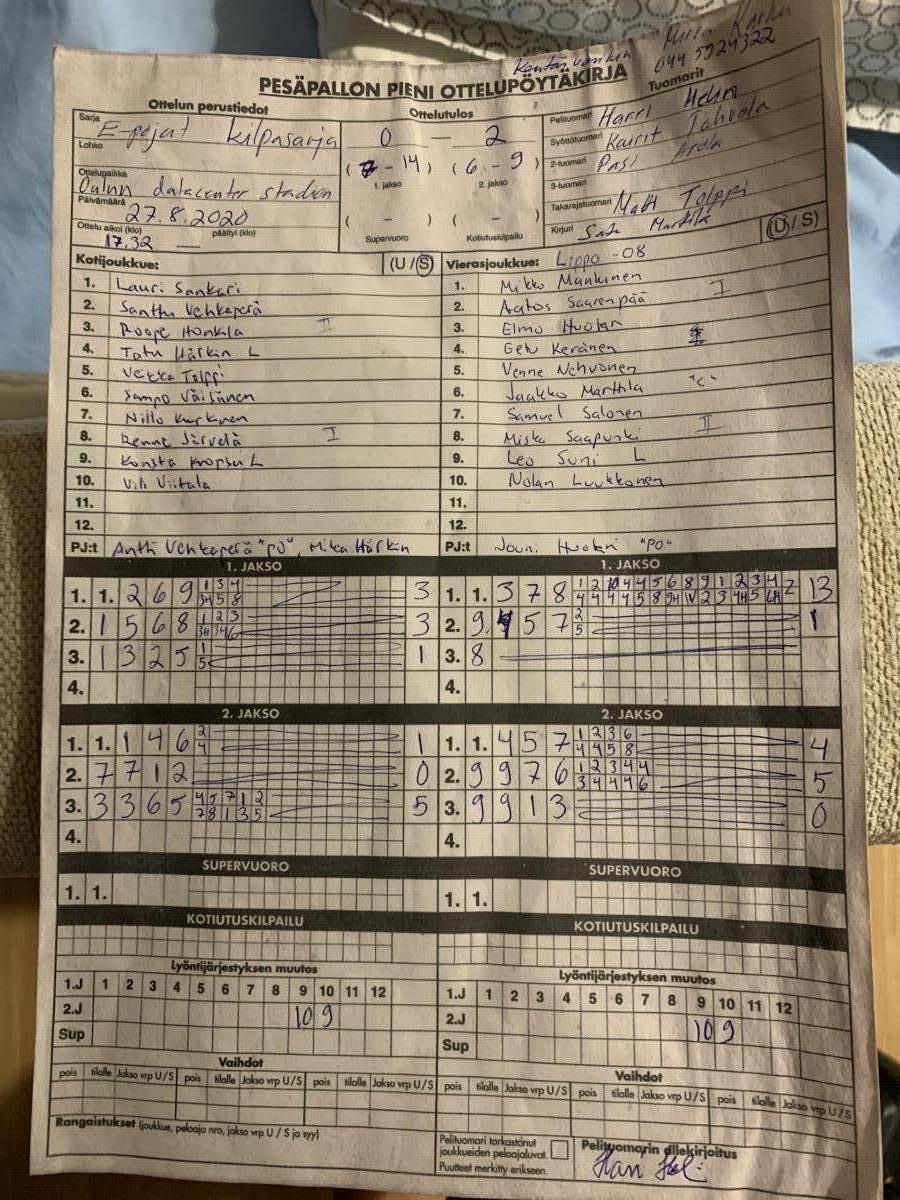 PESÄPALLON PIENI OTTELUPÖYTÄKIRJA
044 5924322
Ottelun perustiedot
Ottelutulos
Tuomarit
Sarja E-pojat kilpasarja
Lohko
Ottelupaikka
Oulun datacenter stadion
Päivämäärä 27.8.2020
Ottelu alkoi (klo) 17.32 päättyi (klo)
0 – 2
( 7 - 14 ) ( 6 - 9 )
1. jakso 2. jakso
( - ) ( - )
Supervuoro Kotiutuskilpailu
Pelituomari Harri
Syöttötuomari
2-tuomari Pasi
3-tuomari
Takarajatuomari Matti Tolppi
Kirjuri Satu Marttila
Kotijoukkue: (U / S)
1. Lauri Sankari
2. Santtu Vehkaperä
3. Roope Honkala II
4. Tatu Härkin L
5. Veikka Tolppi
6. Sampo Väisänen
7. Niilo
8. Benne Järvelä I
9. Konsta Kropsu L
10. Vili Viitala
11.
12.
PJ:t Antti Vehkaperä "PJ", Mika Härkin
Vierasjoukkue: Lippo -08 (U / S)
1. Mikko Mankinen
2. Aatos Saarenpää I
3. Elmo Huotari
4. Getu Keränen
5. Venne Nehvonen
6. Jaakko Marttila "C"
7. Samuel Salonen
8. Miska Saapunki II
9. Leo Suni L
10. Nolan Luukkonen
11.
12.
PJ:t Jouni Huotari "PO"
1. JAKSO
1. 1. 2 6 9 1 3 4 3
3H 5 8
2. 1 5 6 8 1 2 3 3
3H 3H 6
3. 1 3 2 5 1 1
5
4.
1. JAKSO
1. 1. 3 7 8 1 2 10 4 4 5 6 8 9 1 2 3 4 2 13
2. 9 4 5 7 2 1
5
3. 8
4.
2. JAKSO
1. 1. 1 4 6 2 1
4
2. 7 7 1 2 0
3. 3 3 6 5 4 5 7 1 2 5
7 8 1 3 5
4.
2. JAKSO
1. 1. 4 5 7 1 2 3 6 4
4 4 5 8
2. 9 9 7 6 1 2 3 4 4 5
3 4 4 4 6
3. 9 9 1 3 0
4.
SUPERVUORO
1. 1.
SUPERVUORO
1. 1.
KOTIUTUSKILPAILU
KOTIUTUSKILPAILU
Lyöntijärjestyksen muutos
1.J 1 2 3 4 5 6 7 8 9 10 11 12
2.J 10 9
Sup
Lyöntijärjestyksen muutos
1.J 1 2 3 4 5 6 7 8 9 10 11 12
2.J 10 9
Sup
Vaihdot
pois tilalle Jakso vrp U/S pois tilalle Jakso vrp U/S pois tilalle Jakso vrp U/S
Vaihdot
pois tilalle Jakso vrp U/S pois tilalle Jakso vrp U/S pois tilalle Jakso vrp U/S
Rangaistukset (joukkue, pelaaja nro, jakso vrp U / S ja syy)
Pelituomari tarkastanut
joukkueiden pelaajaluvat.
Puutteet merkitty erikseen.
Pelituomarin allekirjoitus